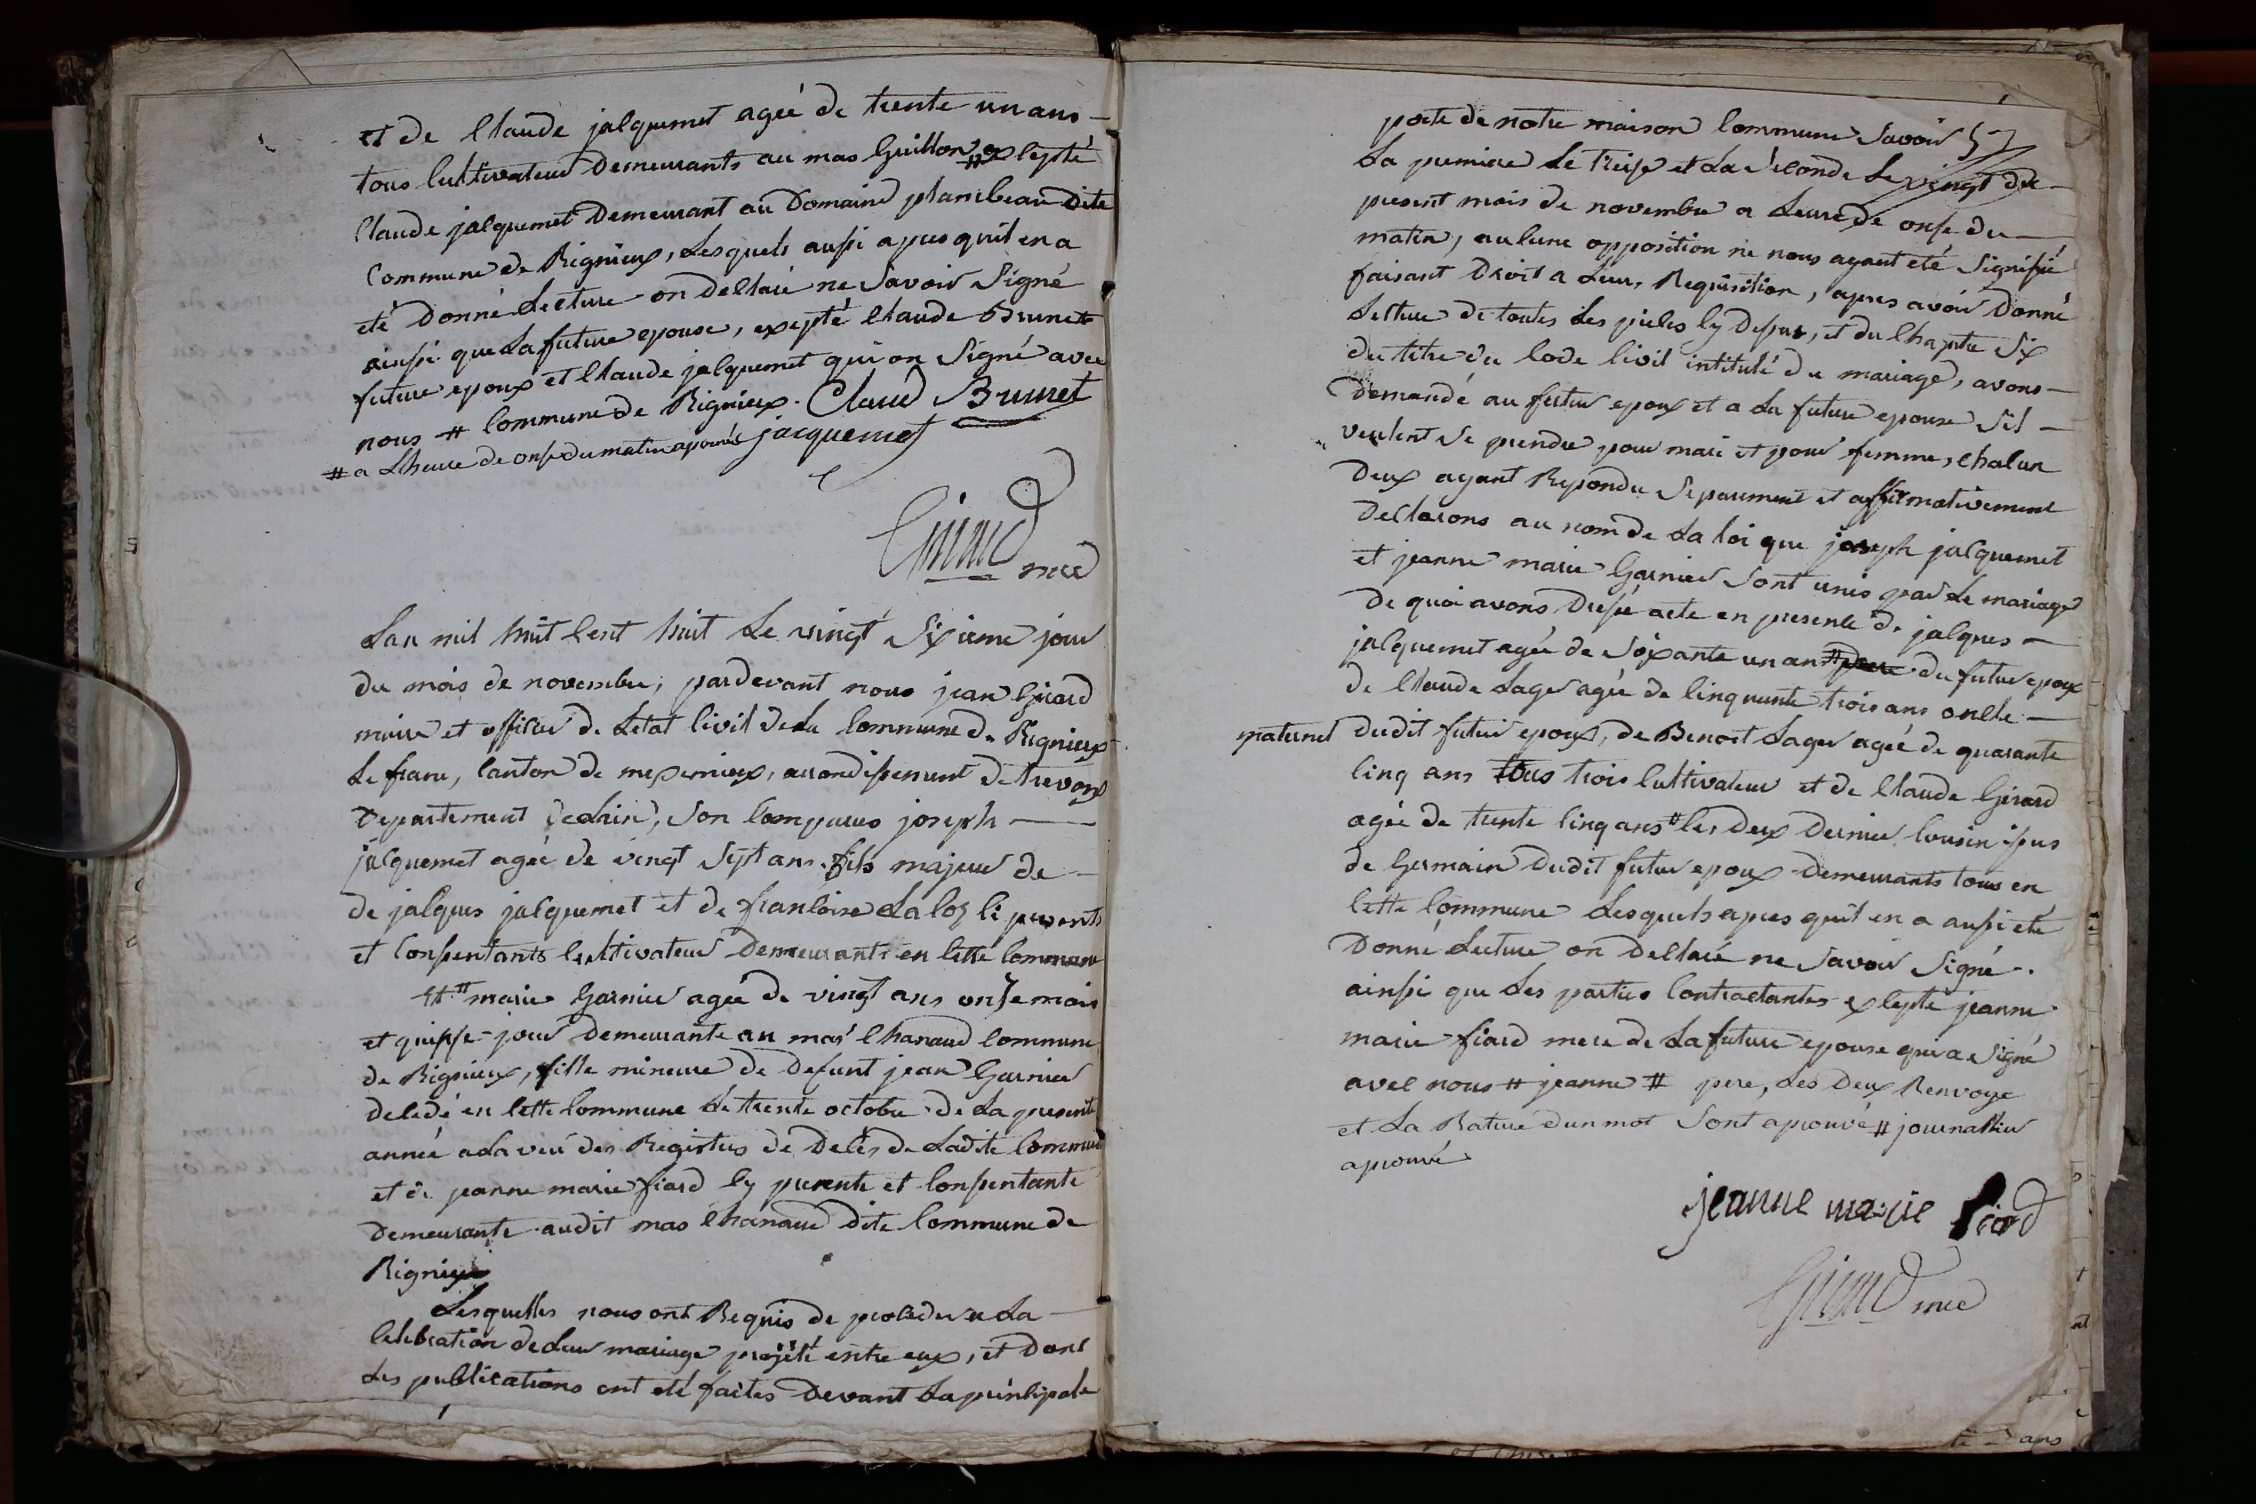 et de Claude jacquemet agée de trente un ans
tous cultivateur Demeurants au mas Guillon # exlepté
Claude jacquemet Demeurant au Domaine planibeau Dite
Commune de Rignieux, Lesquels aussi apres quil en a
eté Donné Lecture on Declaré ne Savoir Signé
ainssi que La future epouse, expté Claude Brunet
future epoux et Claude jacquemet qui on Signé avec
nous # Commune de Rignieux. Claud Brunet
# a Lheure de onse du matin aprouvé jacquemet
Girard
mre
Lan mil huit Cent huit Le vingt Sixieme jour
du mois de novembre, pardevant nous jean Girard
maire et officier de Letat Civil de La Commune de Rignieux
Le franc, Canton de meximieux, arrondissement de trevoux
Departement de Lain, Son Comparus joseph
jacquemet agée de vingt Sept ans. fils majeur de
de jacques jacquemet et de francoise La Cos Ci presents
et Conssentants Cultivateur Demeurants en Cette Commune
et # marie Garnier agée de vingt ans onze mois
et quinsse jour Demeurante au mas Chanaud Commune
de Rignieux, fille mineure de Defunt jean Garnier
decedé en Cette Commune Le trente octobre de La presente
année a La veu des Registres de Décés de Ladite Commune
et de jeanne marie fiard Cy presente et Conssentante
Demeurante audit mas Chanaud dite Commune de
Rignieux
Lesquelles nous ont Requis de proceder a La
Celebration de Leur mariage projété entre eux, et Dont
Les publications ont eté faites Devant La principale
porte de notre maison Commune Savoir 57
La premiere Le treise et La Seconde Le vingt du
present mois de novembre a Leure de onse du
matin, aucune opposition ne nous ayant eté Signifié
faisant Droit a Leurs Requisition, apres avoir Donné
Lecture de toutes Les pieces Cy Dessus, et du Chapitre Six
du titre du Code Civil intitulé du mariage, avons
Demandé au futur epoux et a La future epouse Sil
veulent Se prendre pour mari et pour femme, Chacun
Deux ayant Repondu Separement et affirmativement
Declarons au nom de La loi que joseph jacquemet
et jeanne marie Garnier Sont unis par Le mariage
De quoi avons Dressé acte en presence de jacques
jacquemet agée de Soixante un ans # pere du futur epoux
de Claude Lager agée de Cinquante trois ans oncle
maternel dudit futur epoux, de Benoit Lager agée de quarante
Cinq ans tous trois Cultivateur et de Claude Girard
agée de trente Cinq ans # les deux Dernier Cousin issus
de Germain dudit futur epoux Demeurants tous en
Cette Commune Lesquels apres quil en a aussi eté
Donné Lecture on Declaré ne Savoir Signé.
ainssi que Les parties Contractantes exlepté jeanne
marie fiard mere de La future epouse qui a Signé
avec nous # jeanne # pere, Les Deux Renvoye
et La Rature dun mot Sont aprouvé # journallier
aprouvé
jeanne marie fiard
Girard mre
te ans